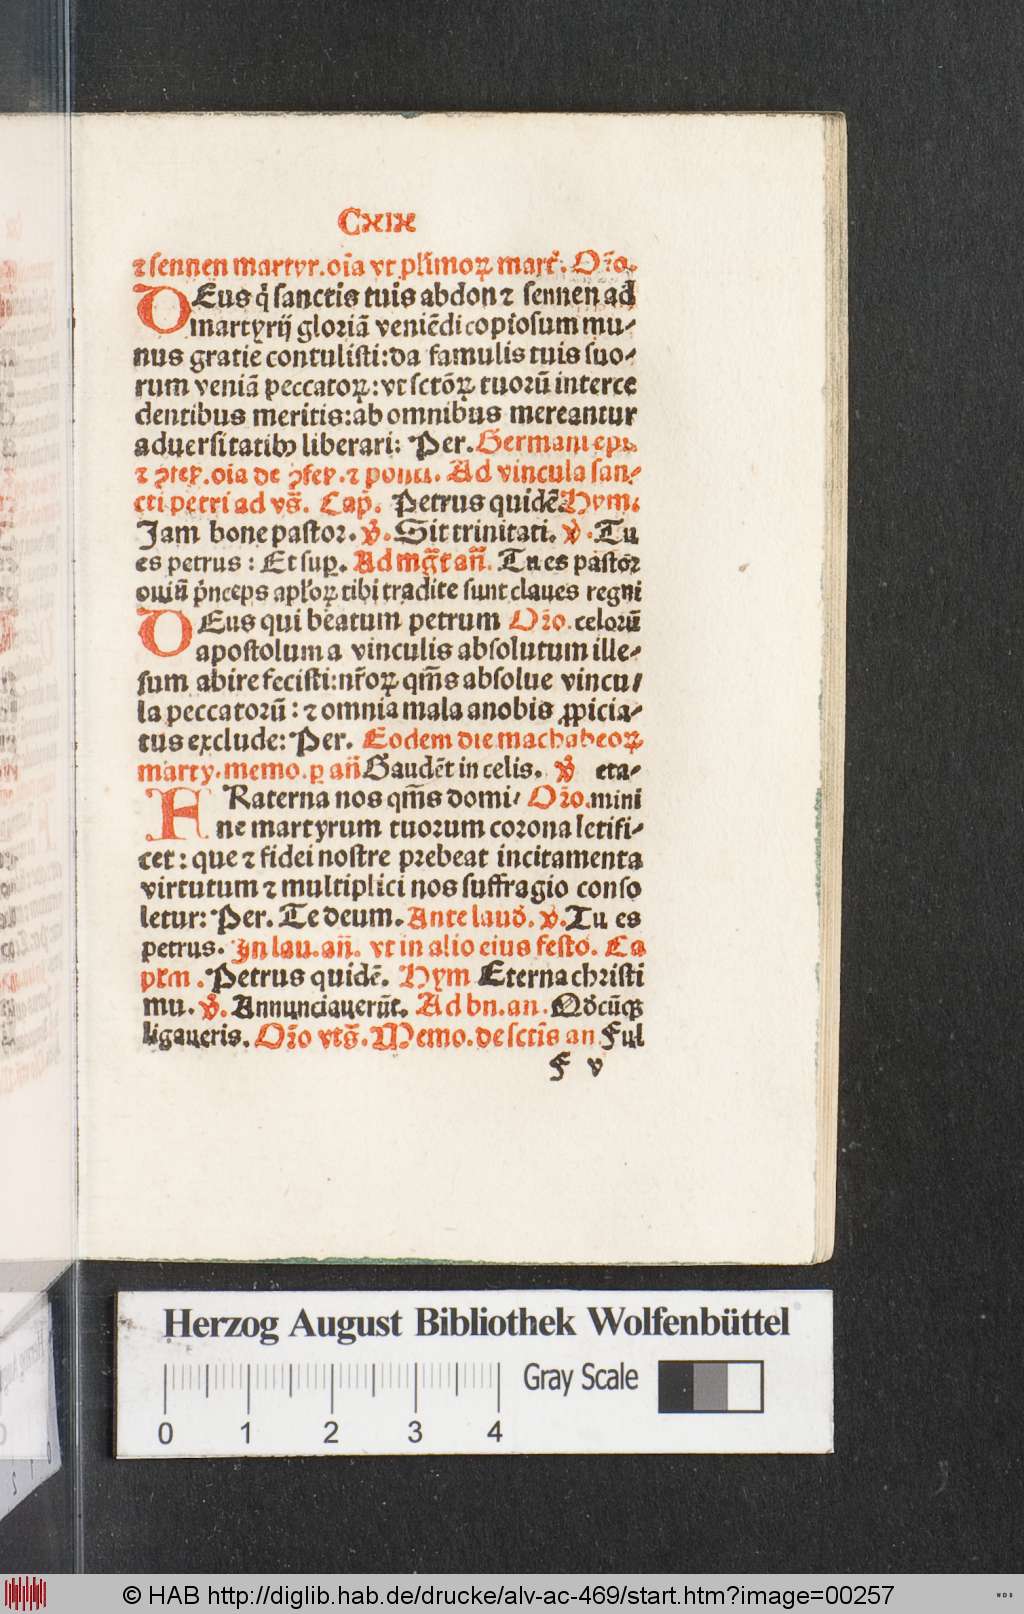 Cxix
⁊ sennen martyr. oīa vt pl'imoꝝ mart'. Oŕo.
DEus q̇ sanctis tuis abdon ⁊ sennen ad
martyrij gloriā veniēdi copiosum mu-
nus gratie contulisti: da famulis tuis suo-
rum veniā peccatoꝝ: vt sctōꝝ tuorū interce
dentibus meritis: ab omnibus mereantur
aduersitatibꝰ liberari: Per. Germani epi.
⁊ ꝯfes. oīa de ꝯfes. ⁊ ponti. Ad vincula san-
cti petri ad vs̄. Cap̄. Petrus quidē. Hym.
Jam bone pastor. ℣. Sit trinitati. ℣. Tu
es petrus: Et suꝑ. Ad mḡt an̄. Tu es pastor
ouiū p̄nceps apl'oꝝ tibi tradite sunt claues regni
DEus qui beatum petrum Oŕo. celorū
apostolum a vinculis absolutum ille-
sum abire fecisti: nr̄oꝝ qm̄s absolue vincu-
la peccatorū: ⁊ omnia mala a nobis ꝓpicia-
tus exclude: Per. Eodem die machabeoꝝ
marty. memo. ꝑ an̄ Gaudēt in celis. ℣ eta-
FRaterna nos qm̄s domi- Oŕo. mini
ne martyrum tuorum corona letifi-
cet: que ⁊ fidei nostre prebeat incitamenta
virtutum ⁊ multiplici nos suffragio conso
letur: Per. Te deum. Ante laud. ℣. Tu es
petrus. Jn lau. an̄. vt in alio eius festo. Ca
pťm. Petrus quidē. Hym Eterna christi
mu. ℣. Annunciauerūt. Ad bn. an. Qd'cūqꝫ
ligaueris. Oŕo vts̄. Memo. de sctīs an Ful
f v
Herzog August Bibliothek Wolfenbüttel
Gray Scale
0 1 2 3 4
© HAB http://diglib.hab.de/drucke/alv-ac-469/start.htm?image=00257